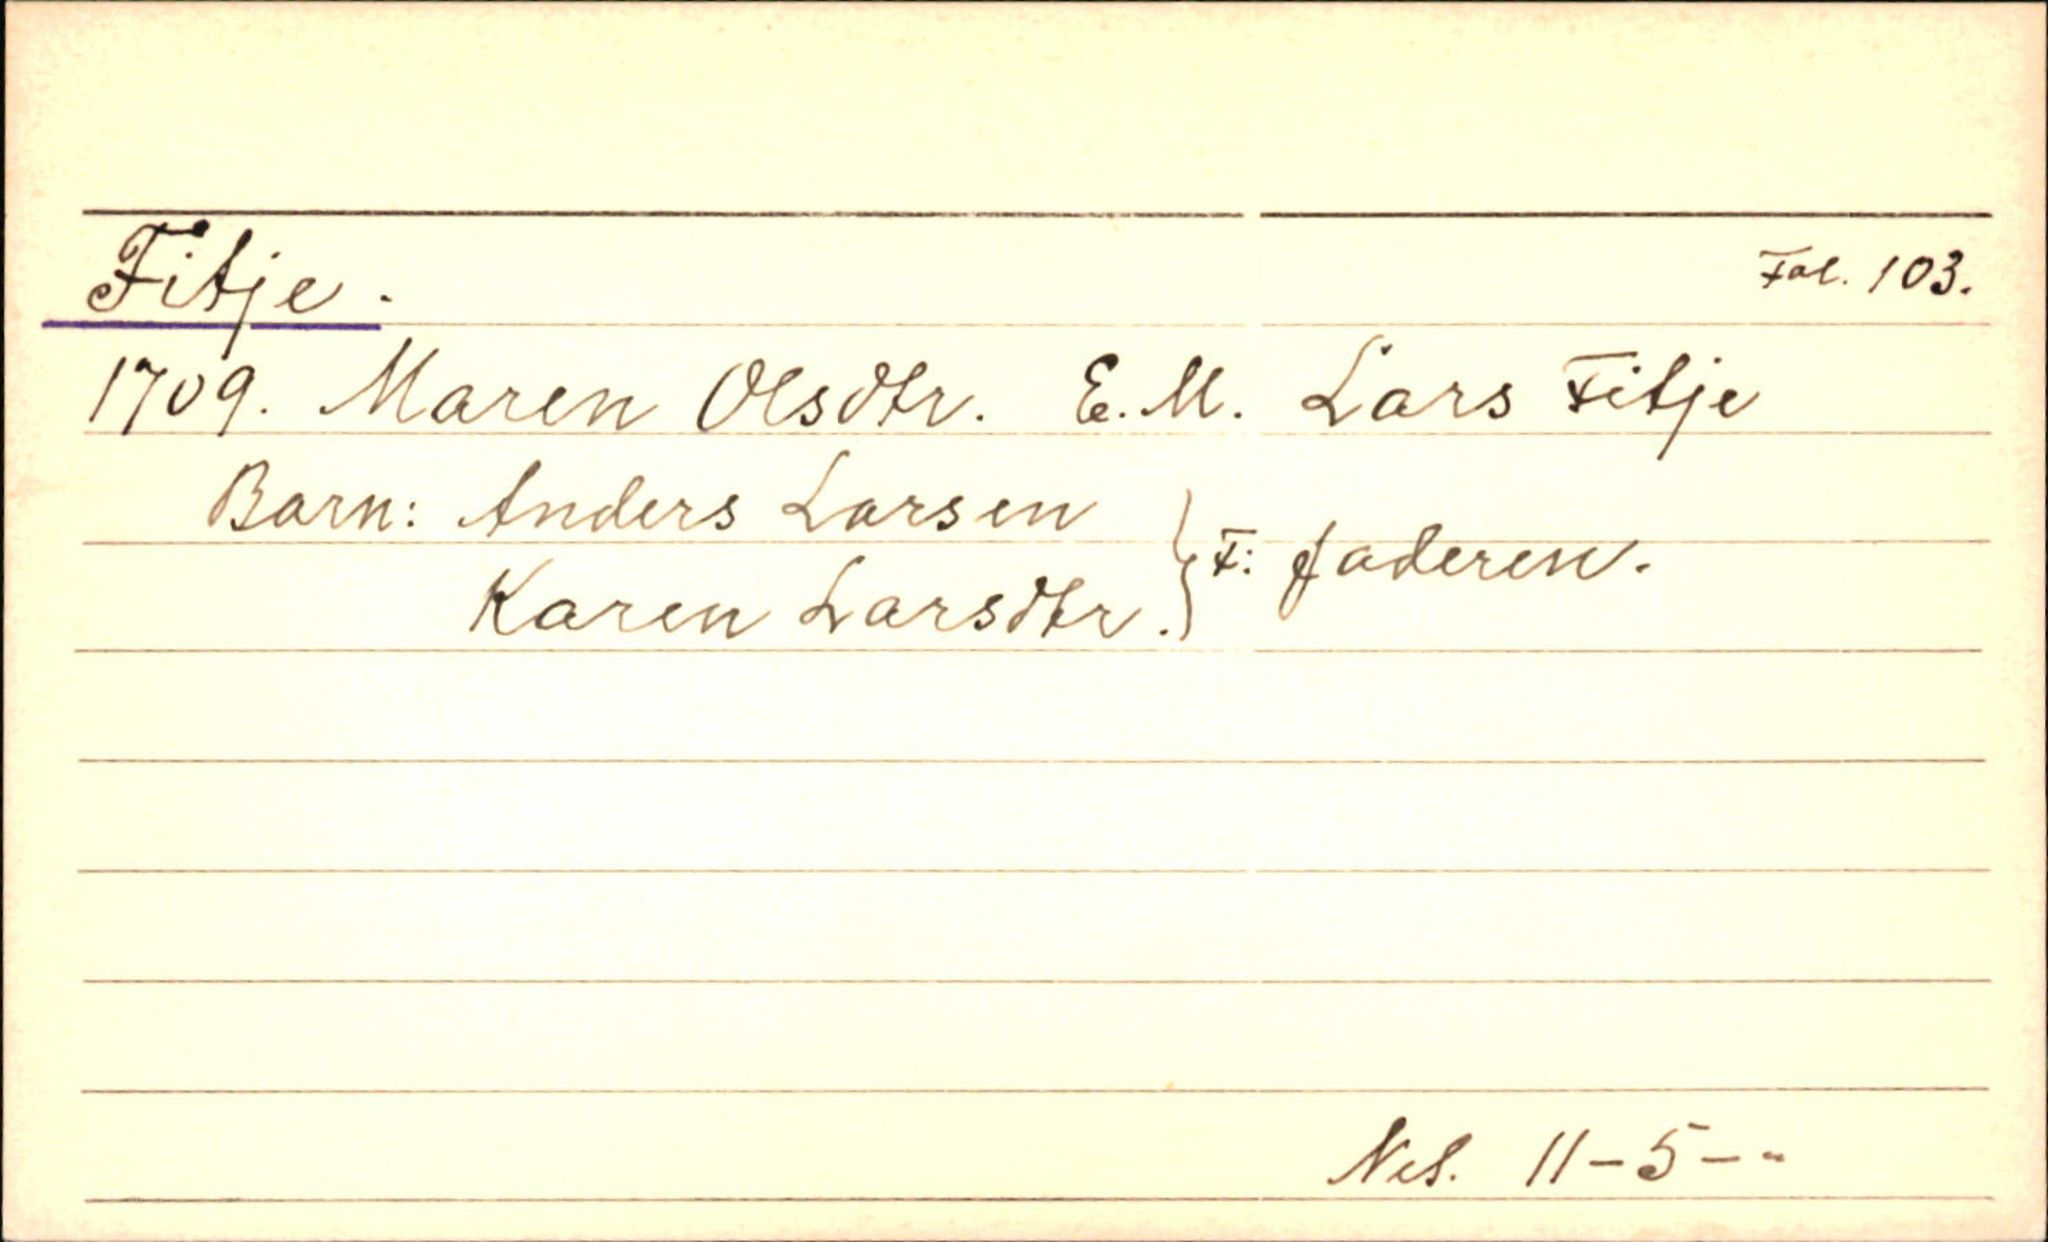 Fitje.
Fol. 103.
1709. Maren Olsdtr. E. M. Lars Fitje
Barn: Anders Larsen
Karen Larsdtr. } F: faderen.
Net. 11-5-"